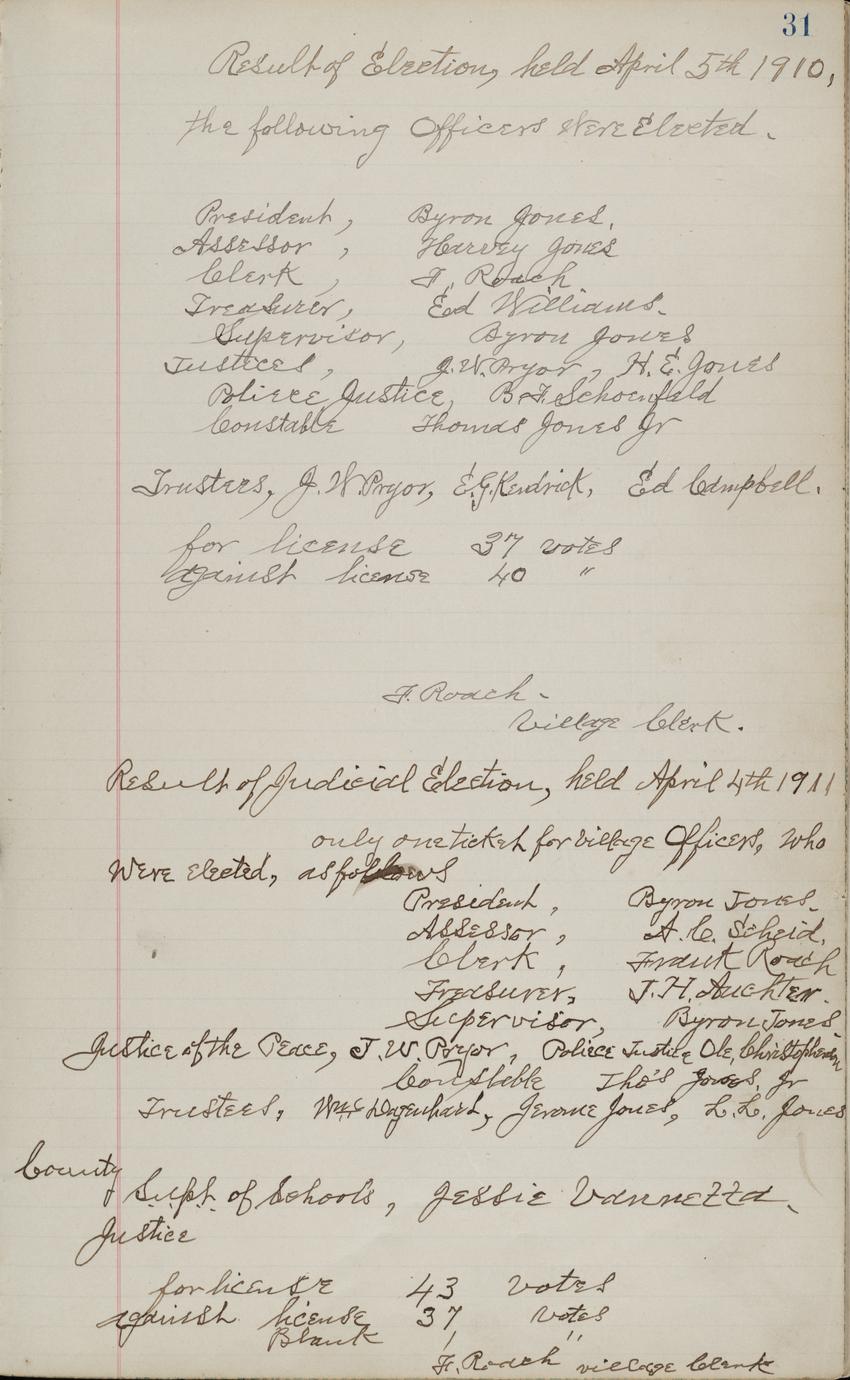 31
Result of Election, held April 5th 1910,
the following Officers Were Elected.
President, Byron Jones.
Assessor, Harvey Jones
Clerk, F. Roach
Treasurer, Ed Williams.
Supervisor, Byron Jones
Justices, J.W. Pryor, H.E. Jones
Poliece Justice, B.F. Schoenfeld
Constable Thomas Jones Jr
Trusters, J.W. Pryor, E.G. Kendrick, Ed Campbell.
for license 37 votes
against license 40 "
F. Roach -
Village Clerk.
Result of Judicial Election, held April 4th 1911
only one ticket for village Officers, who
Were elected, as follows
President, Byron Jones.
Assessor, A.C. Scheid.
Clerk, Frank Roach
Treasurer, J.H. Auchter.
Supervisor, Byron Jones
Justice of the Peace, J.W. Pryor, Poliece Justice Ole Christophersen
Constable Tho's Jones, Jr
Trustees, Wm Wagenhard, Jerome Jones, L.L. Jones
County
Supt. of Schools, Jessie Vannetta.
Justice
for license 43 votes
against license 37 votes
Blank 1 "
F. Roach village Clerk